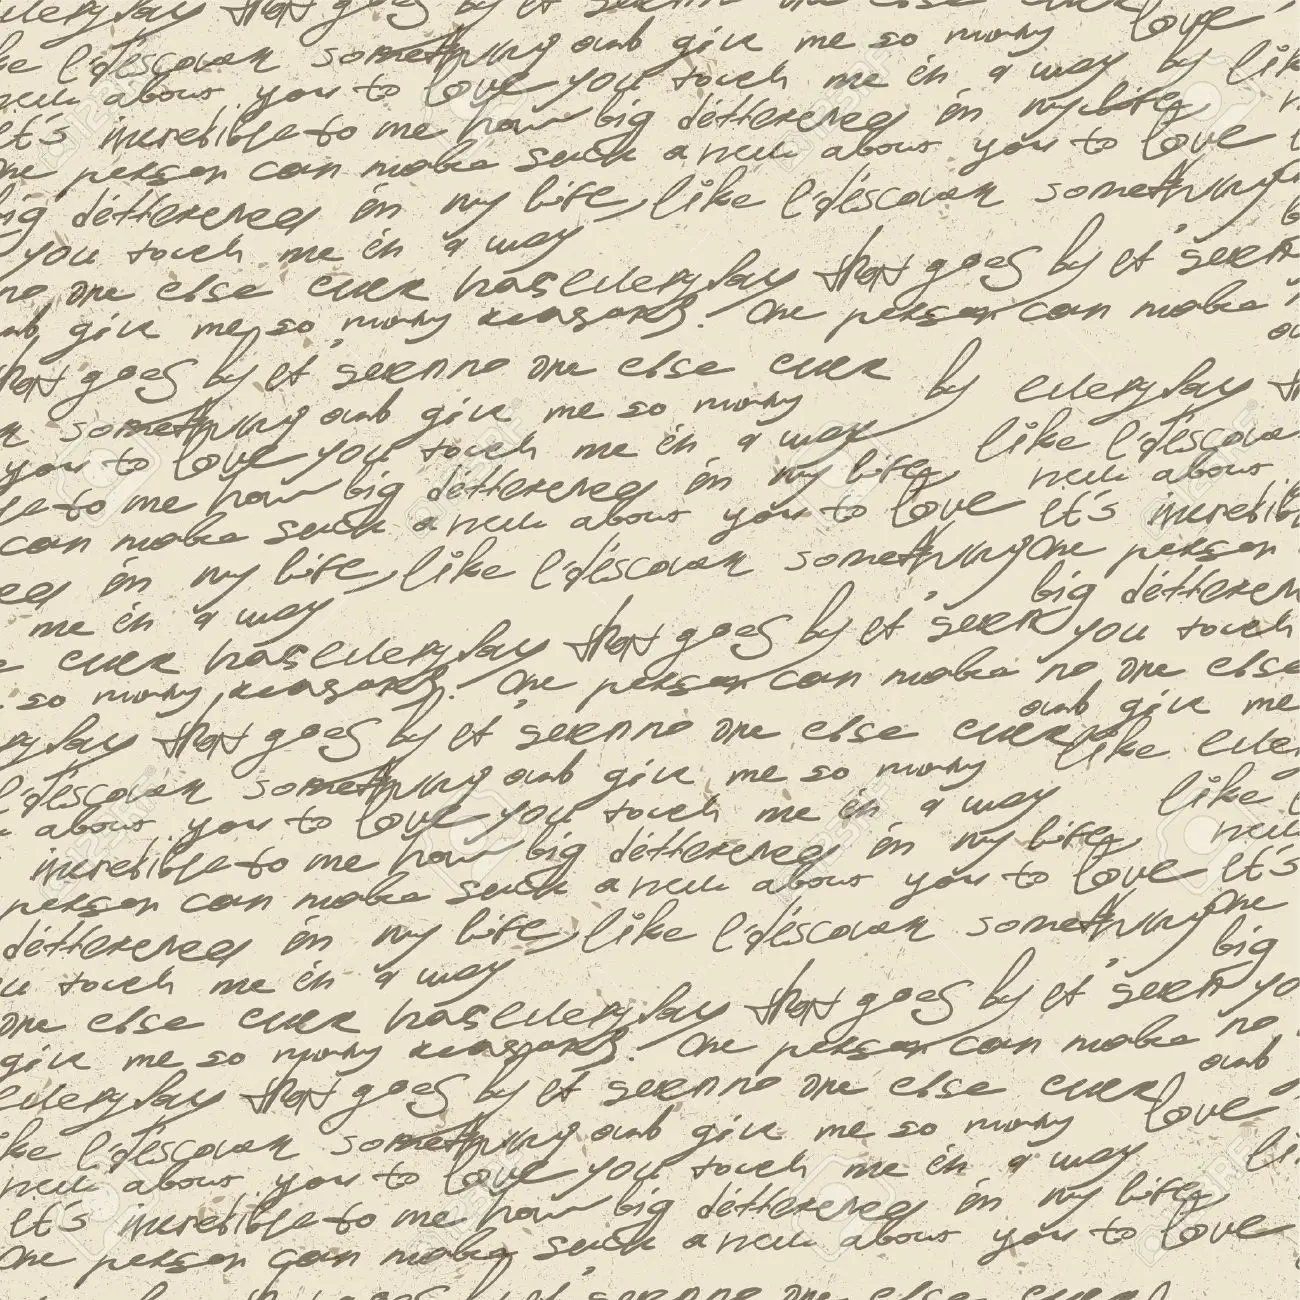 everyday that goes by it seem no one else ever
like I discover something and give me so many love
new about you to love you touch me in a way by like
It's incredible to me how big difference in my life,
One person can make such a new about you to love
big difference in my life, like I discover something
you touch me in a way
no one else ever has everyday that goes by it seem
and give me so many reasons. One person can make
that goes by it seem no one else ever by everyday
something and give me so many like I discover
you to love you touch me in a way new about
to me how big difference in my life, It's incredible
can make such a new about you to love One person
in my life, like I discover something big
me in a way you touch
ever has everyday that goes by it seem no one else
so many reasons. One person can make and give me
that goes by it seem no one else ever like
I discover something and give me so many like
about you to love you touch me in a way new
incredible to me how big difference in my life, It's
person can make such a new about you to love One
difference in my life, like I discover something big
touch me in a way
one else ever has everyday that goes by it seem no
give me so many reasons. One person can make and
everyday that goes by it seem no one else ever love
like I discover something and give me so many
new about you to love you touch me in a way
It's incredible to me how big difference in my life,
One person can make such a new about you to love